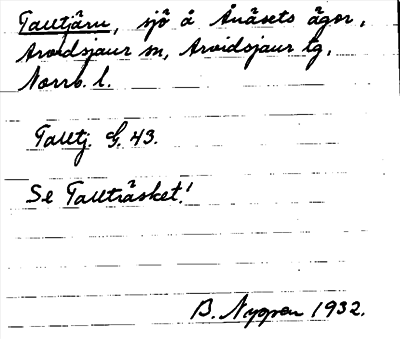 Talltjärn, sjö å Ånäsets ägor,
Arvidsjaur sn, Arvidsjaur tg,
Norrb. l.
Talltj. G. 43.
Se Tallträsket!
B. Nygren 1932.